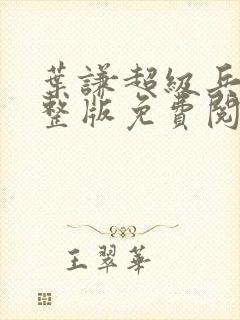 葉謙超級兵
整版免費閱
王翠華